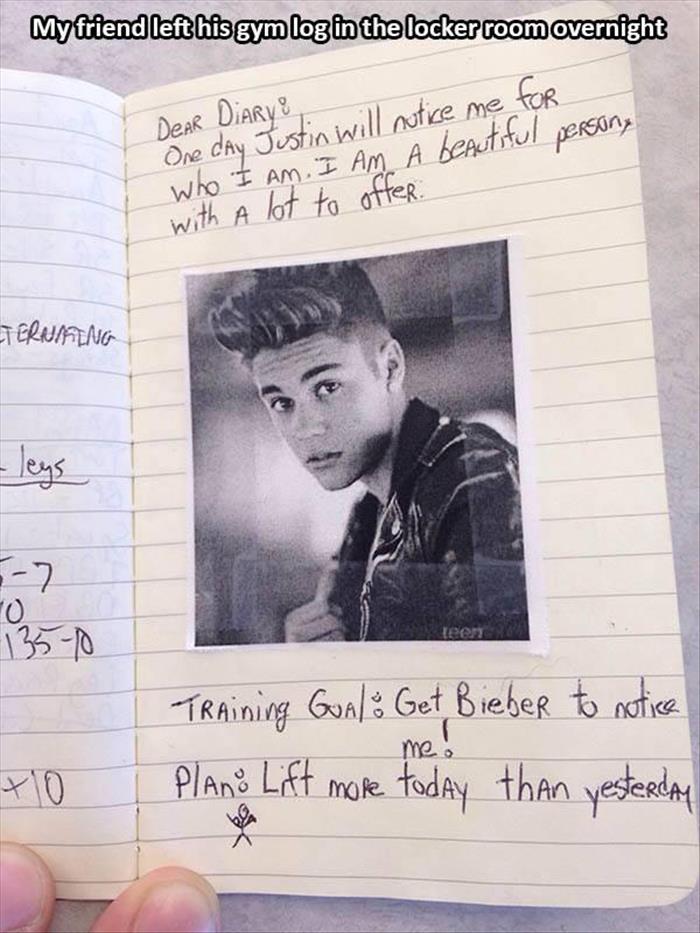 My friend left his gym log in the locker room overnight
DEAR DiARY:
One dAy Justin will notice me foR
who I AM. I AM A beAutiful peRson,
with A lot to offeR.
legs
135-10
+10
teen
TRAining GoAl: Get BiebeR to notice
me!
PlAn: Lift moRe todAy thAn yesteRdAy